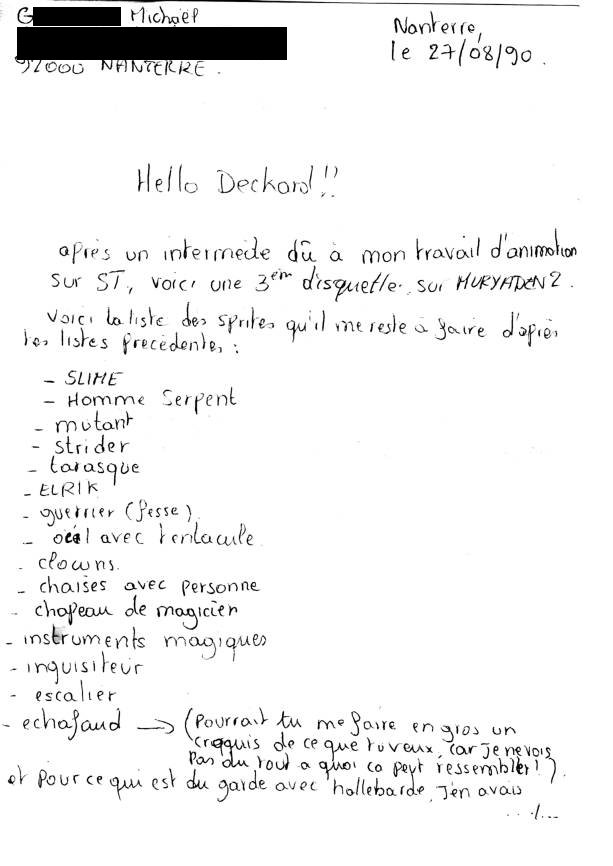 G Michaël
92000 NANTERRE.
Nanterre,
le 27/08/90.
Hello Deckard!!
après un intermede dû à mon travail d'animation
sur ST, voici une 3èm disquette sur MURYADEN 2.
Voici la liste des sprites qu'il me reste à faire d'après
tes listes precedentes :
- SLIME
- Homme Serpent
- mutant
- strider
- tarasque
- ELRIK
- guerrier (fesse)
- oeil avec tentacule.
- clowns.
- chaises avec personne
- chapeau de magicien
- instruments magiques
- inquisiteur
- escalier
- echafaud → (Pourrait tu me faire en gros un
croquis de ce que tu veux, car je ne vois
Pas du tout a quoi ça peut ressembler!).
et Pour ce qui est du garde avec hallebarde, j'en avais
../...